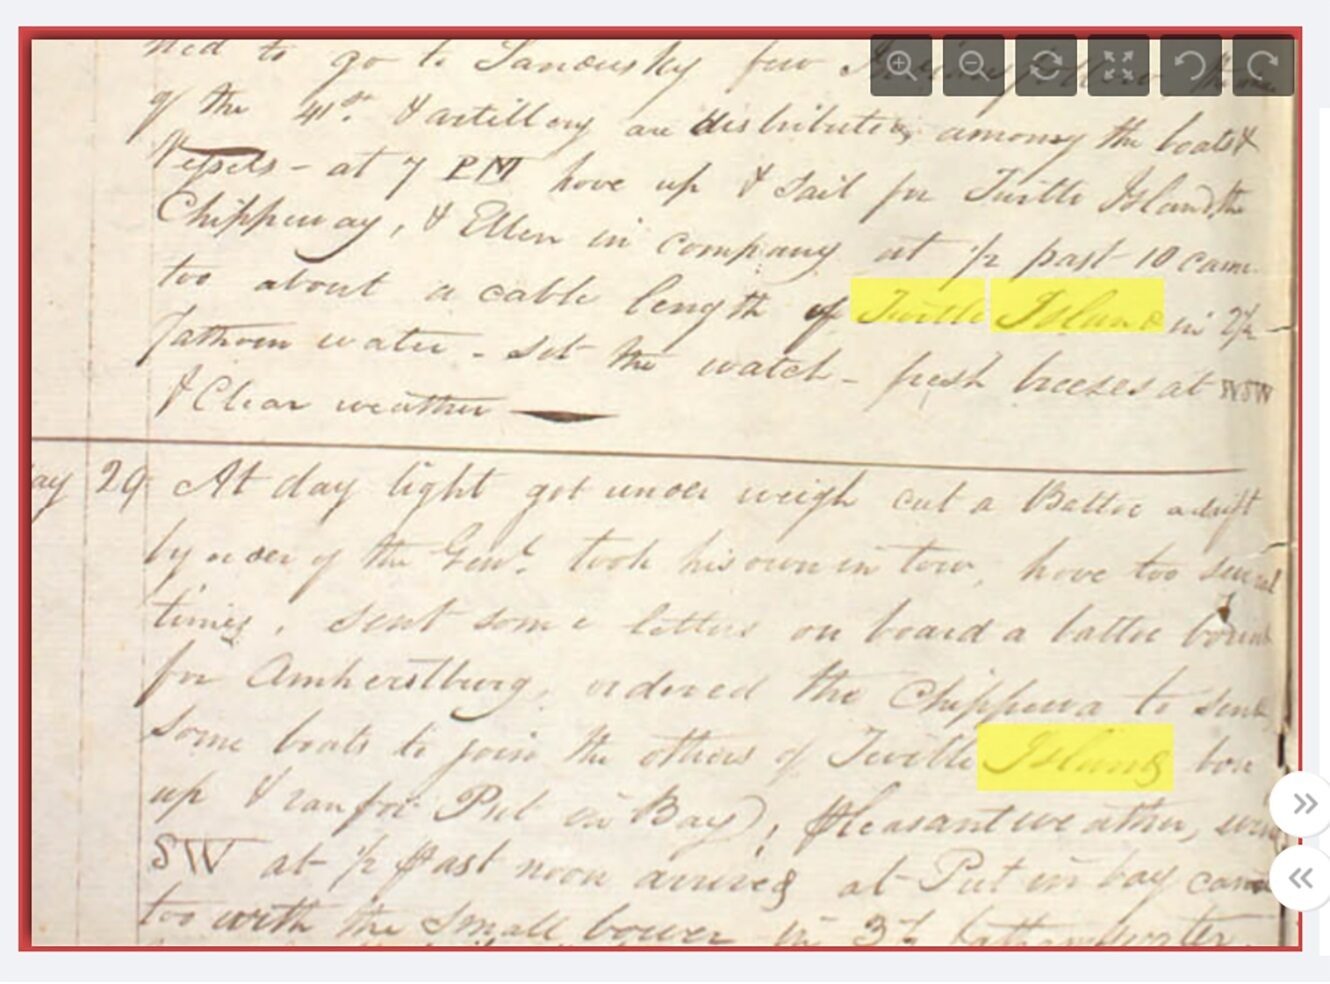 ned to go to Sandusky few
of the 41st. & artillery are distributed, among the boats &
Vessels - at 7 PM hove up & sail for Turtle Island, the
Chippeway, & Ellen in company at 1/2 past 10 came
too about a cable length of Turtle Island in 2 1/2
fathom water - set the watch - fresh breezes at WSW
& Clear weather
ay 29 At day light got under weigh cut a Battoe adrift
by order of the Genl. took his own in tow, hove too several
times, sent some letters on board a battoe bound
for Amherstburg, ordered the Chippewa to send
some boats to join the others of Turtle Island bore
up & ran for Put in Bay, pleasant weather, wind
SW at 1/2 past noon arrived at Put in bay came
too with the small bower in 3 1/2 fathom water.